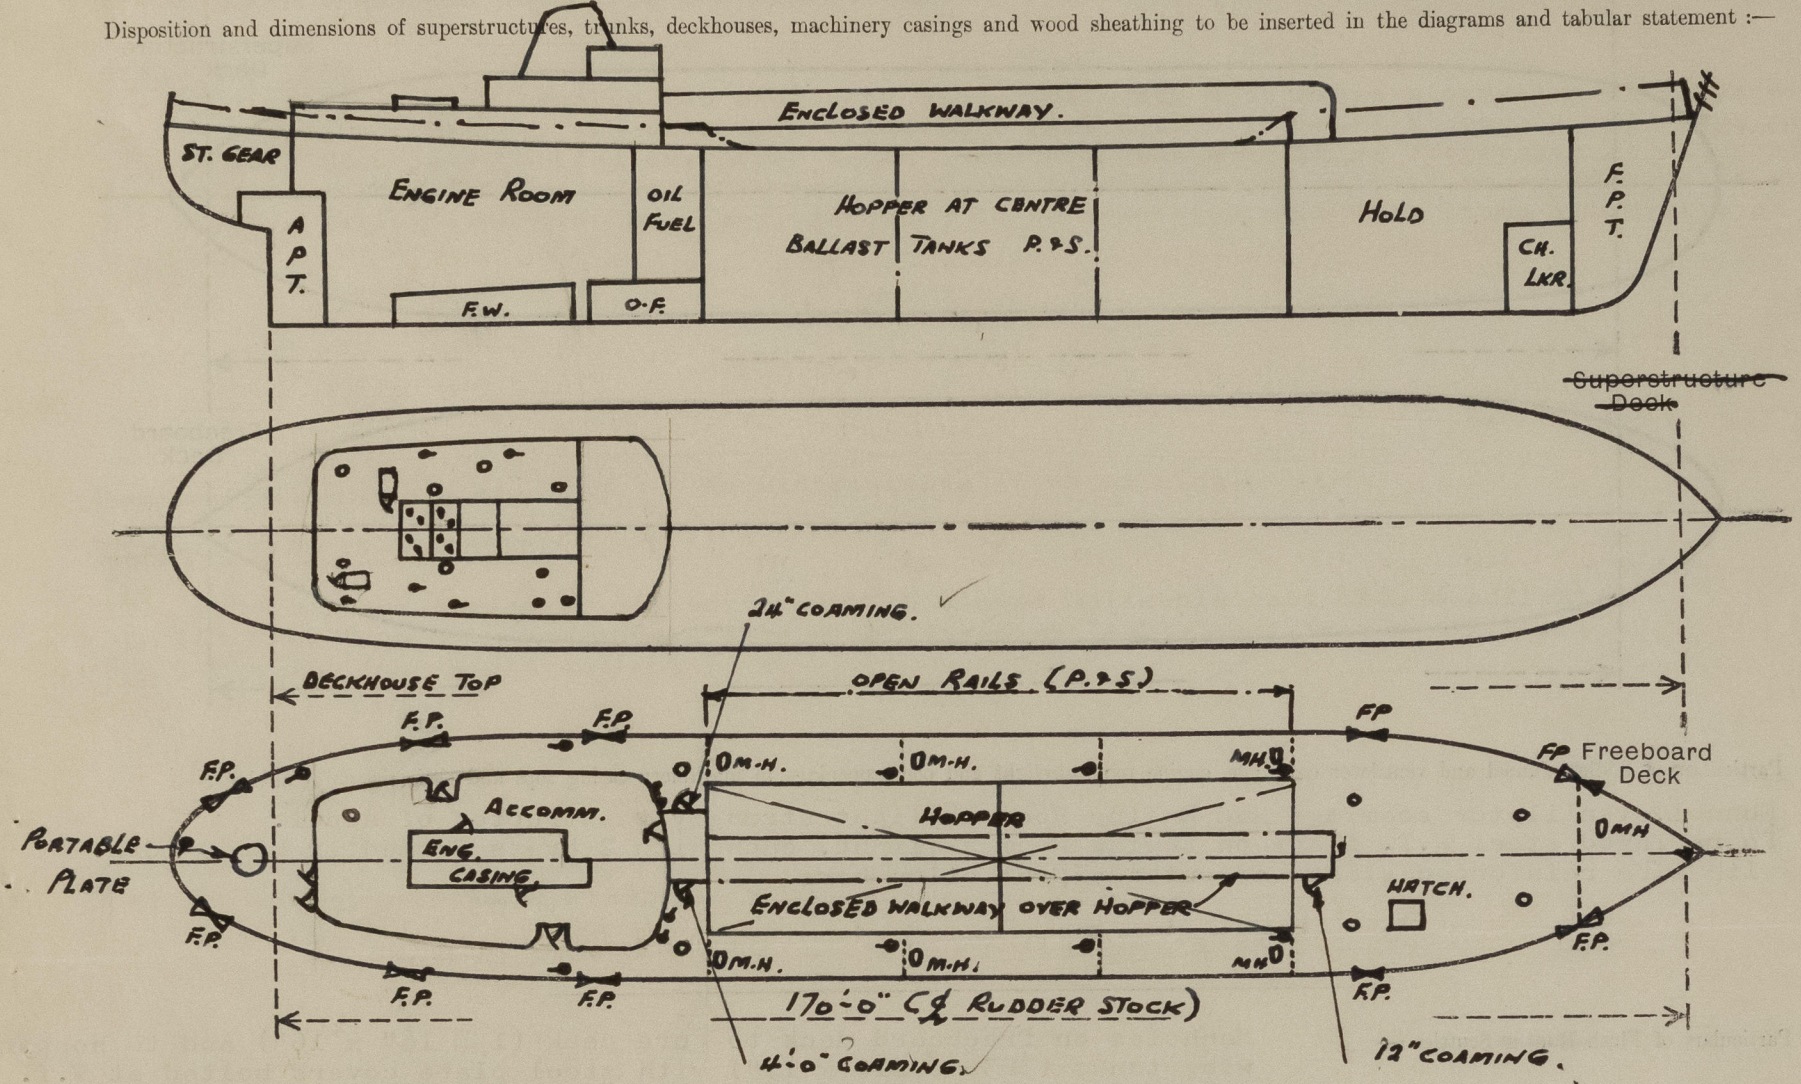 Disposition and dimensions of superstructures, trunks, deckhouses, machinery casings and wood sheathing to be inserted in the diagrams and tabular statement :—
ENCLOSED WALKWAY.
ST. GEAR
ENGINE ROOM
OIL
FUEL
HOPPER AT CENTRE
BALLAST TANKS P.&S.
HOLD
F.
P.
T.
A
P
T.
CH.
LKR.
F.W.
O.F.
Superstructure
Deck
24" COAMING.
DECKHOUSE TOP
OPEN RAILS (P.&S)
F.P.
F.P.
FP
F.P.
FP
Freeboard
Deck
M.H.
M.H.
MH
ACCOMM.
HOPPER
MH
PORTABLE
PLATE
ENG.
CASING
HATCH.
ENCLOSED WALKWAY OVER HOPPER
F.P.
F.P.
M.H.
M.H.
MH
F.P.
F.P.
F.P.
170'-0" (℄ RUDDER STOCK)
4'-0" COAMING.
12" COAMING.